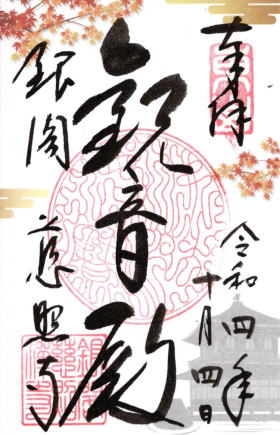 奉拝
令和四年
十月四日
観音殿
銀閣
慈照寺